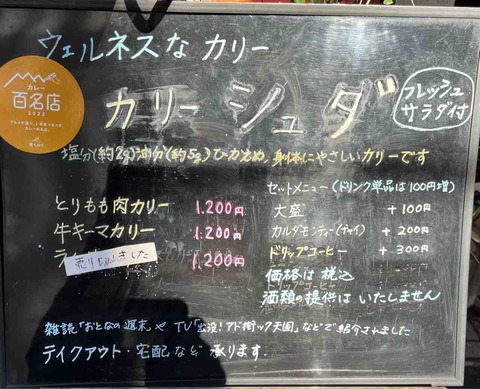 ウェルネスな カリー
カレー
百名店
2023
食べログ
カリー シュダ
フレッシュ
サラダ付
塩分(約2g)油分(約5g)ひかえめ 身体にやさしいカリーです
セットメニュー(ドリンク単品は100円増)
とりもも肉カリー 1,200円
大盛 +100円
牛キーマカリー 1,200円
カルダモンティー(チャイ) +200円
売り切れました 1,200円
ドリップコーヒー +300円
価格は 税込
酒類の提供は いたしません
雑誌「おとなの週末」や TV「出没!アド街ック天国」などで紹介されました
テイクアウト・宅配など 承ります.